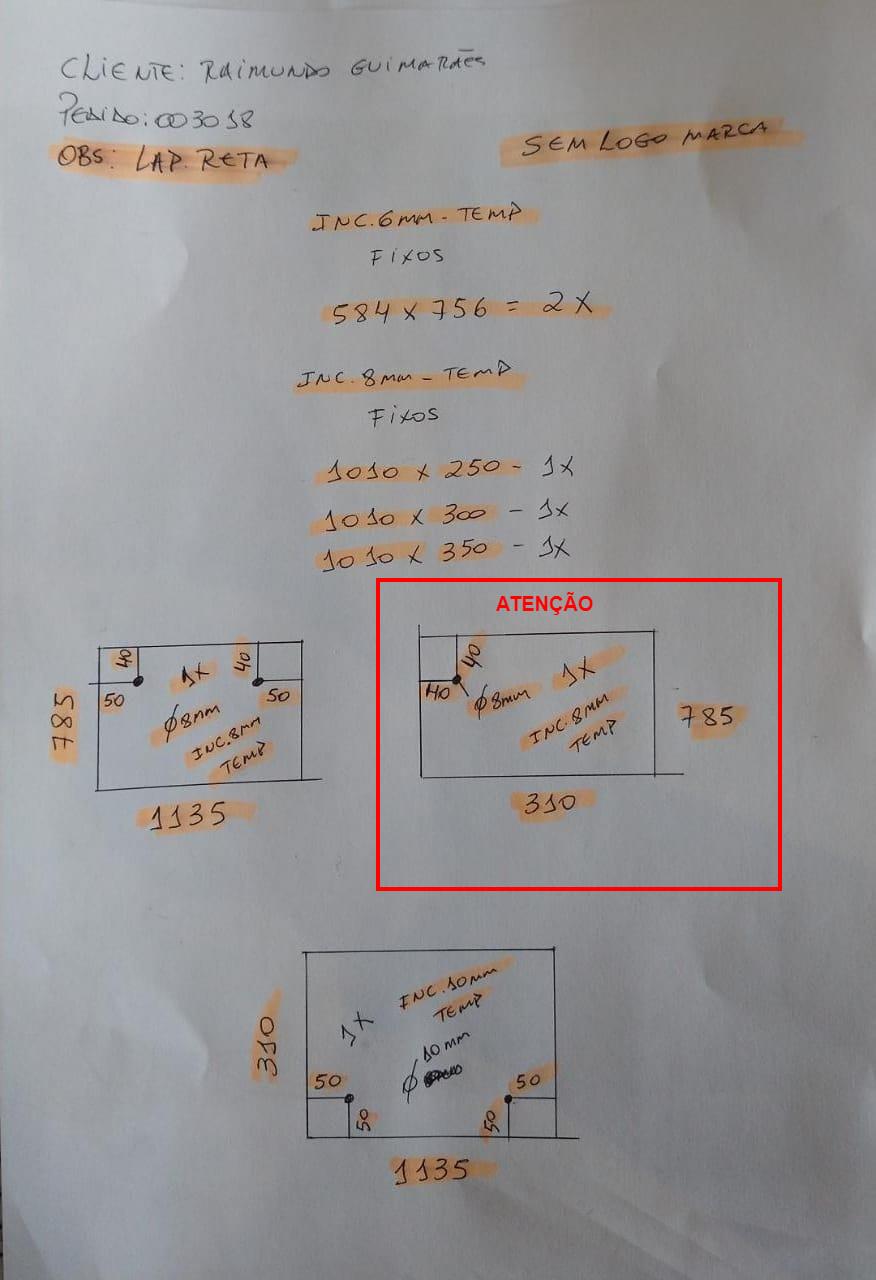 CLIENTE: RAIMUNDO GUIMARÃES
PEDIDO: 003018
OBS: LAP. RETA
SEM LOGO MARCA
INC. 6mm - TEMP
FIXOS
584 x 756 = 2x
INC. 8mm - TEMP
FIXOS
1010 x 250 - 1x
1010 x 300 - 1x
1010 x 350 - 1x
ATENÇÃO
40
40
50
50
1x
Ø8mm
INC. 8mm
TEMP
785
1135
40
40
Ø8mm
1x
INC. 8mm
TEMP
785
310
INC. 10mm
TEMP
1x
10mm
Ø
310
50
50
50
50
1135